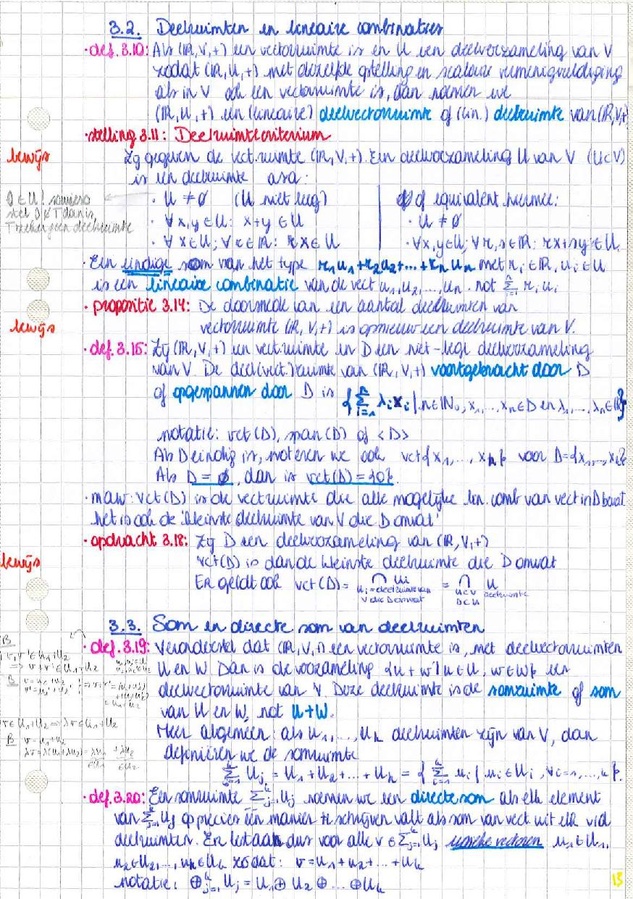 3.2. Deelruimten en lineaire combinaties
• def. 3.10: Als (ℝ,V,+) een vectorruimte is en U een deelverzameling van V
zodat (ℝ,U,+) met dezelfde optelling en scalaire vermenigvuldiging
als in V ook een vectorruimte is, dan noemen we
(ℝ,U,+) een (lineaire) deelvectorruimte of (lin.) deelruimte van (ℝ,V,+)
• stelling 3.11: Deelruimtecriterium
bewijs
Zij gegeven de vect.ruimte (ℝ,V,+). Een deelverzameling U van V (U⊂V)
is een deelruimte asa:
• U ≠ ∅ (U niet leeg)
• ∀x,y∈U: x+y ∈U
• ∀x∈U, ∀r∈ℝ: rx∈U
of equivalent hiermee:
• U ≠ ∅
• ∀x,y∈U, ∀r,s∈ℝ: rx+sy∈U
0∈U! sowieso
stel 0∉T dan is
T zeker geen deelruimte
• Een eindige som van het type r₁u₁+r₂u₂+...+rₙuₙ met rᵢ∈ℝ, uᵢ∈U
is een lineaire combinatie van de vect u₁,u₂,...,uₙ. not Σⁿᵢ₌₁ rᵢuᵢ
• propositie 3.14: De doorsnede van een aantal deelruimten van
bewijs
vectorruimte (ℝ,V,+) is opnieuw een deelruimte van V.
• def. 3.15: Zij (ℝ,V,+) een vect.ruimte en D een niet-lege deelverzameling
van V. De deel(vect.)ruimte van (ℝ,V,+) voortgebracht door D
of opgespannen door D is {Σⁿᵢ₌₁ λᵢxᵢ | n∈ℕ₀, x₁,...,xₙ∈D en λ₁,...,λₙ∈ℝ}
notatie: vct(D), span(D) of <D>
Als D eindig is, noteren we ook vct{x₁,...,xₖ} voor D={x₁,...,xₖ}
Als D = ∅, dan is vct(D)={0}.
• m.a.w: vct(D) is de vect.ruimte die alle mogelijke lin. comb van vect in D bevat
het is ook de 'kleinste deelruimte van V die D omvat'
• opdracht 3.18: Zij D een deelverzameling van (ℝ,V,+)
bewijs
vct(D) is dan de kleinste deelruimte die D omvat
Er geldt ook vct(D) = ∩ Uᵢ = ∩ U
Uᵢ = deelruimte van V die D omvat
U⊂V deelruimte
D⊂U
3.3. Som en directe som van deelruimten
• def. 3.19: Veronderstel dat (ℝ,V,+) een vectorruimte is, met deelvectorruimten
U en W. Dan is de verzameling {u+w | u∈U, w∈W} een
deelvectorruimte van V. Deze deelruimte is de somruimte of som
van U en W, not U+W.
Meer algemeen: als U₁,...,Uₖ deelruimten zijn van V, dan
definiëren we de somruimte
Σᵏⱼ₌₁ Uⱼ = U₁+U₂+...+Uₖ = {Σᵏᵢ₌₁ uᵢ | uᵢ∈Uᵢ, ∀i=1,...,k}.
• def. 3.20: Een somruimte Σᵏⱼ₌₁Uⱼ noemen we een directe som als elk element
van Σᵏⱼ₌₁Uⱼ op precies één manier te schrijven valt als som van vect uit elk v/d
deelruimten. Er bestaan dus voor alle v∈Σᵏⱼ₌₁Uⱼ unieke vectoren u₁∈U₁,
u₂∈U₂,...,uₖ∈Uₖ zodat: v=u₁+u₂+...+uₖ
notatie: ⊕ᵏⱼ₌₁ Uⱼ = U₁⊕U₂⊕...⊕Uₖ
13